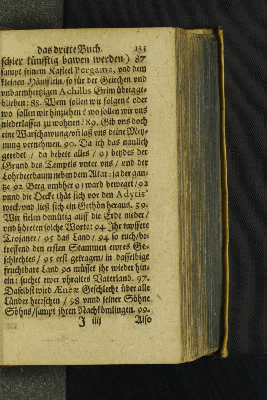 das dritte Buch. 133
schier künfftig bawen werden) 87
sampt seinem Kasteel Pergama, und dem
kleinen Häufflein, so für der Griechen und
und armhertzigen Achillis Grim übrig ge-
blieben: 88. Wem sollen wir folgen? oder
wo sollen wir hinziehen? wo sollen wir uns
niederlassen zu wohnen? 89. Gib uns doch
eine Warschawung / uñ laß uns deine Mey-
nung vernehmen. 90. Da ich das naulich
geredet / da bebete alles / 91 beydes der
Grund des Tempels unter uns / und der
Lohrbeerbaum neben dem Altar: ja der gan-
tze 92 Berg umbher 91 ward beweget / 92
unnd die Decke thät sich vor den Adytis
weck / und ließ sich ein Gethön heraus. 93.
Wir fielen demütig auff die Erde nieder /
und höreten solche Worte: 94. Ihr tapffere
Trojaner / 95 das Land / 94 so euch / be-
treffend den ersten Stammen ewres Ge-
schlechtes / 95 erst getragen / in dasselbige
fruchtbare Land 96 müsset ihr wieder hin-
ein: suchet ewer uhraltes Vaterland. 97.
Daselbst wird Æneæ Geschlecht über alle
Länder herzschen / 98 unnd seiner Söhne
Söhns / sampt ihren Nachkömlingen. 99.
J iiij Also